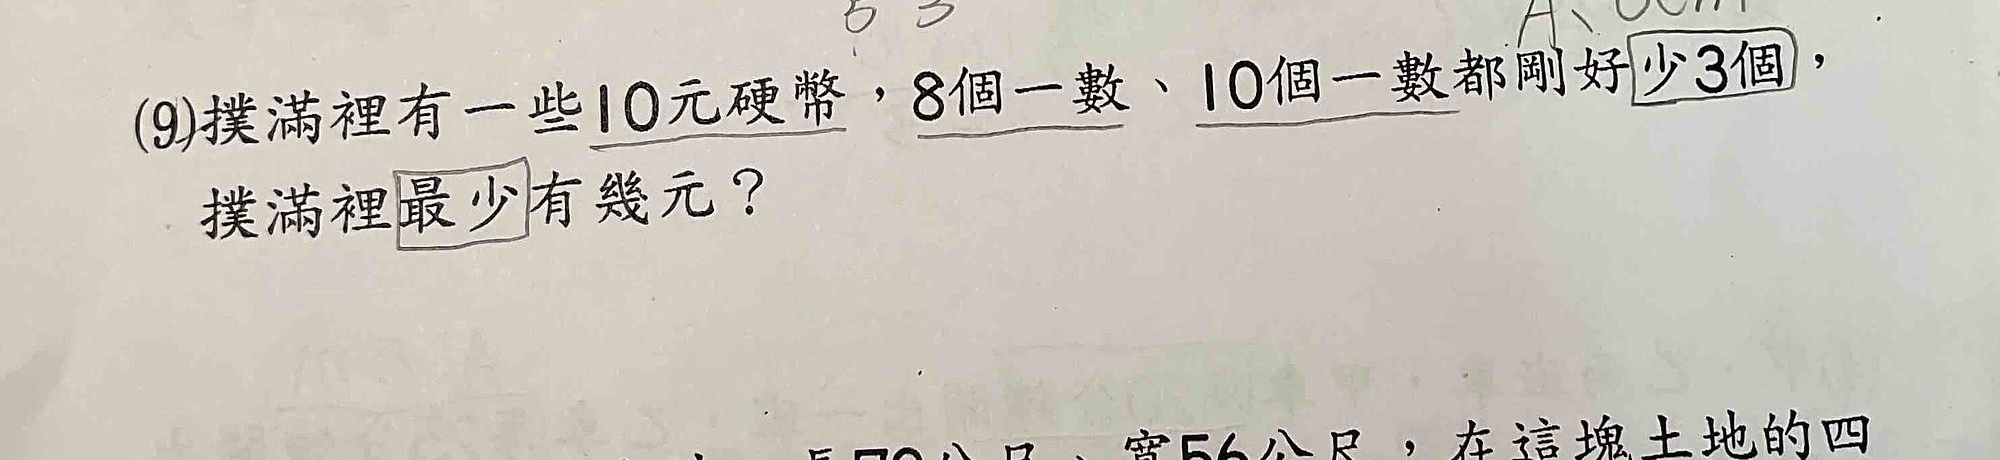 5 3
(9)撲滿裡有一些10元硬幣，8個一數、10個一數都剛好少3個，
撲滿裡最少有幾元？
寬56公尺，在這塊土地的四